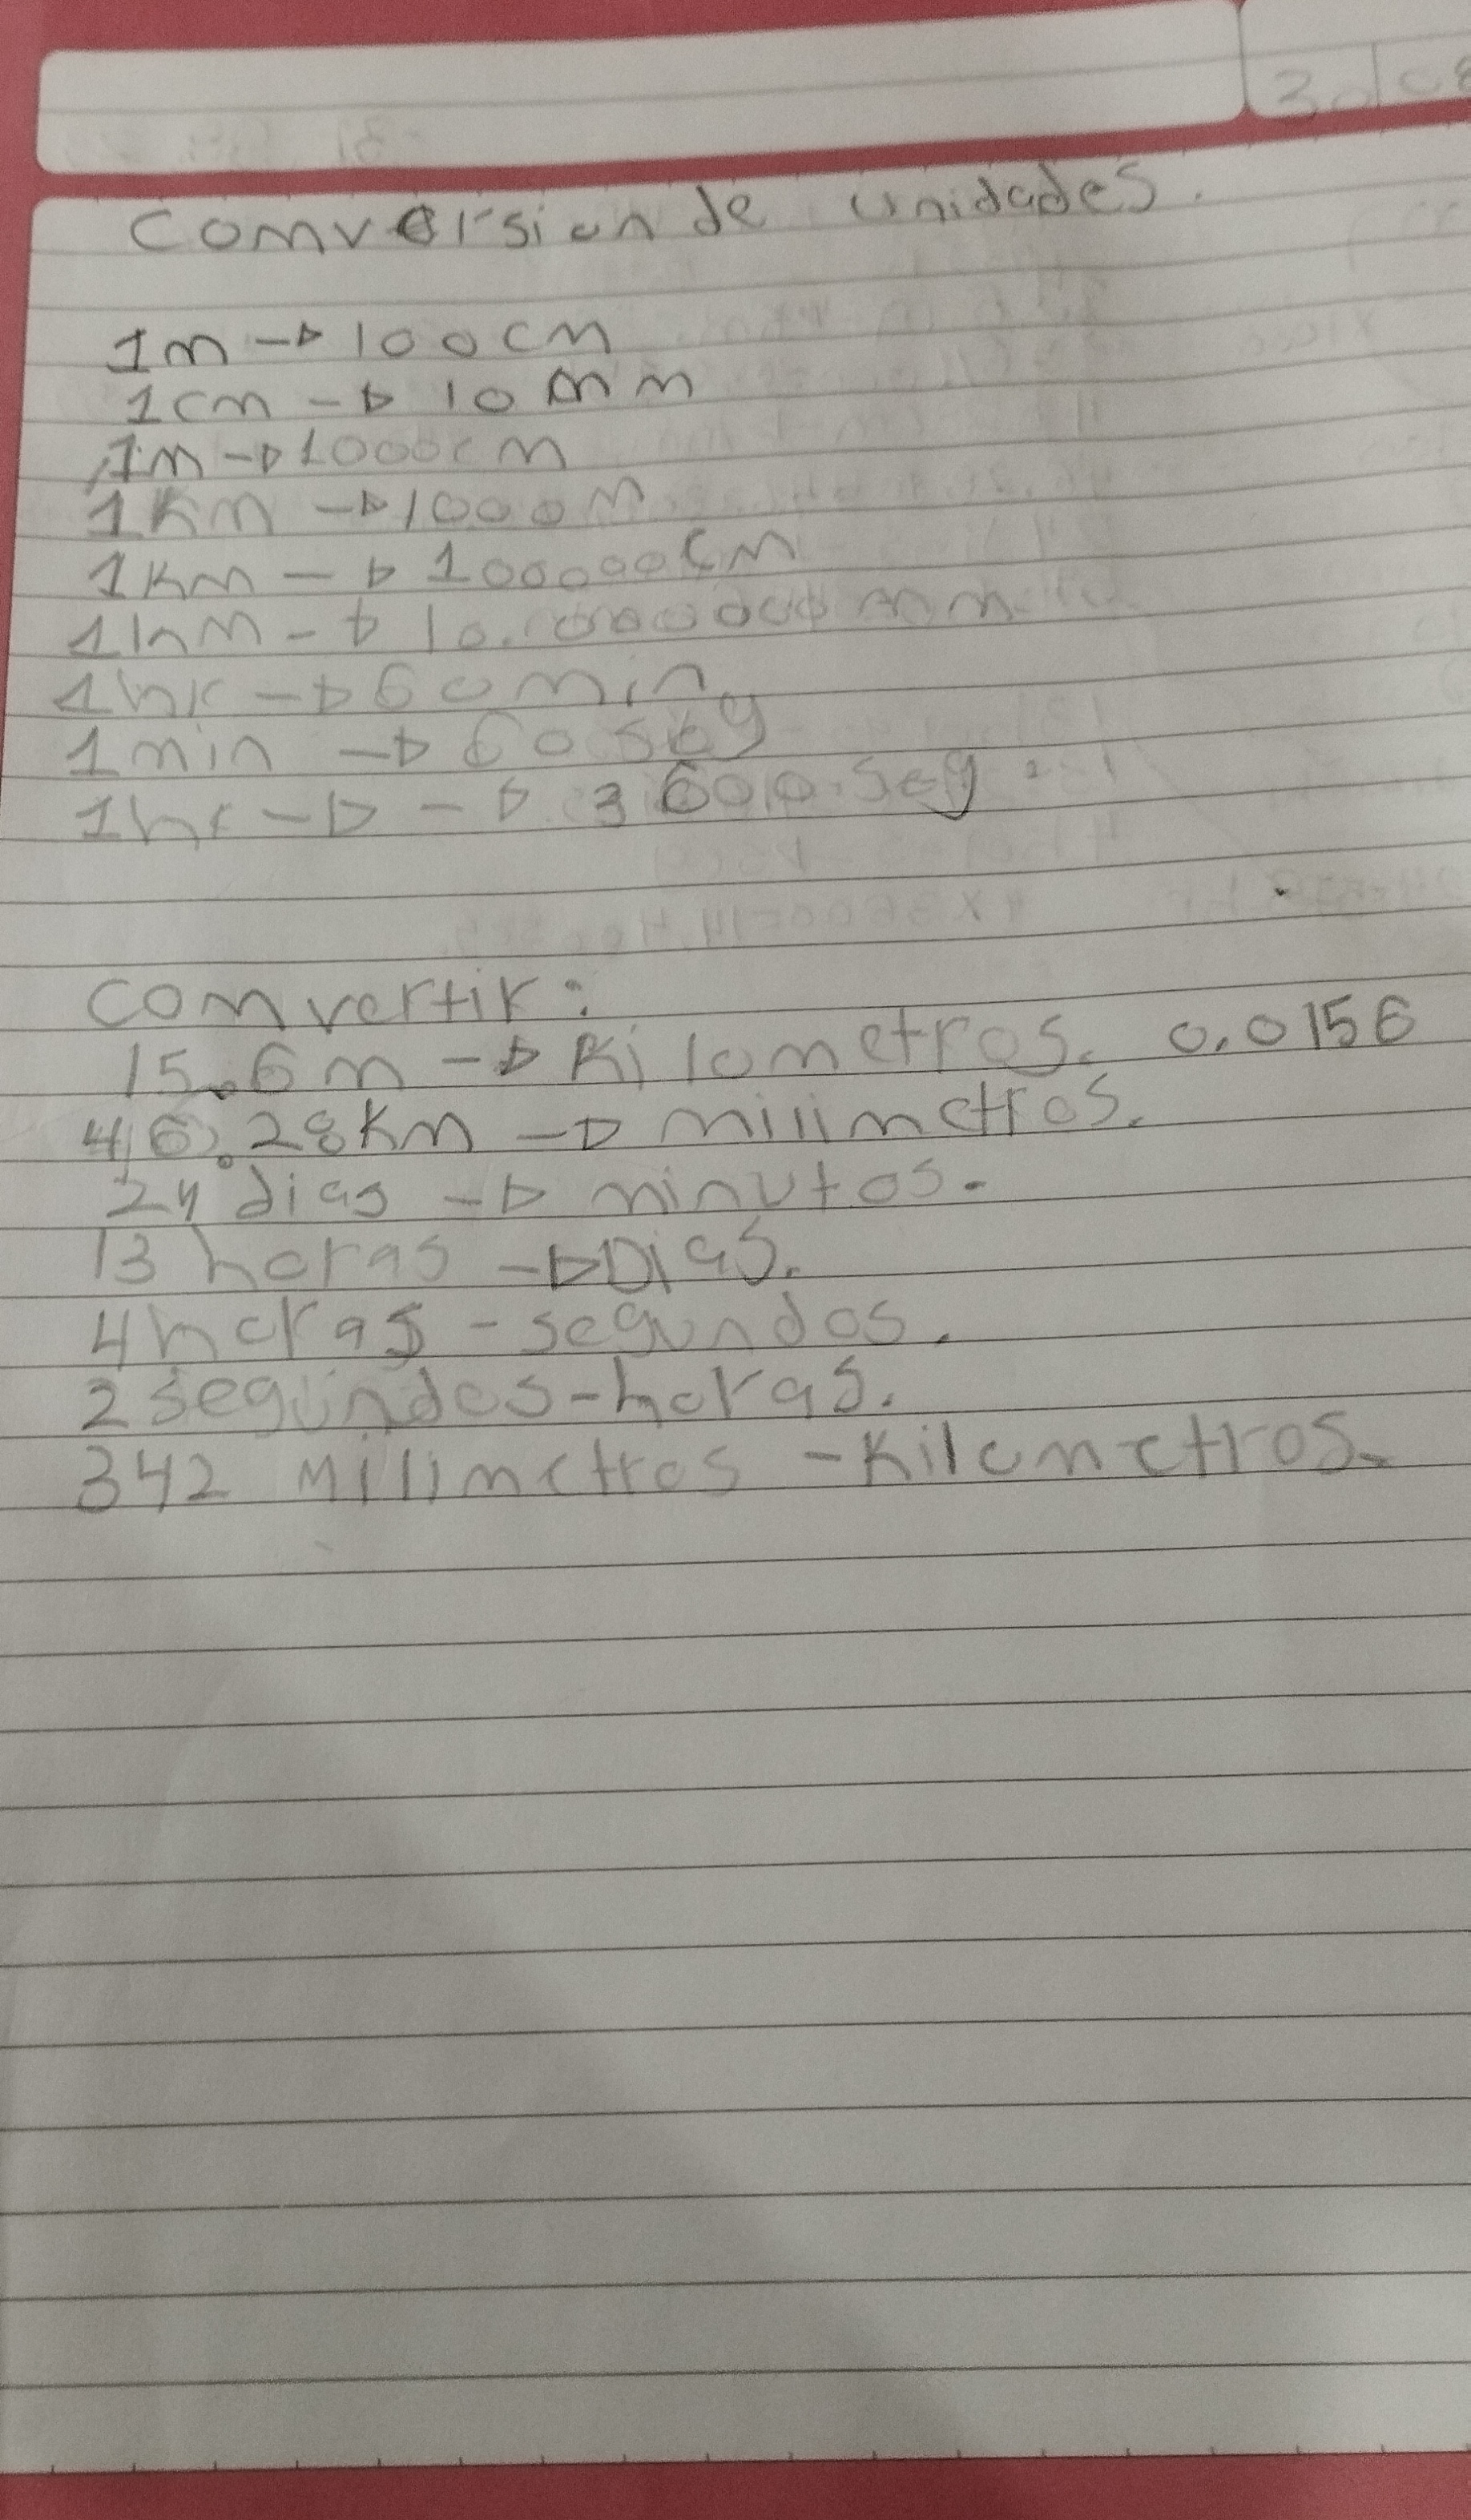 30/08
Comversion de unidades.
1m → 100cm
1cm → 10 mm
1m → 1000cm
1Km → 1000m
1Km → 100000cm
1Km → 10.000000 mm
1hr → 60min
1min → 60seg
1hr → → 3600 seg
Comvertir:
15.6m → Kilometros. 0.0156
46.28Km → milimetros.
24 dias → minutos.
13 horas → Dias.
4horas - segundos.
2segundos-horas.
342 Milimetros - Kilometros.